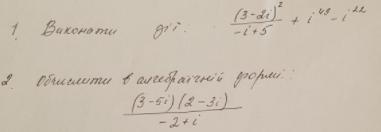 1. Виконати дії: \frac{(3-2i)^2}{-i+5} + i^{49} - i^{22}
2. Обчислити в алгебраїчній формі:
\frac{(3-5i)(2-3i)}{-2+i}